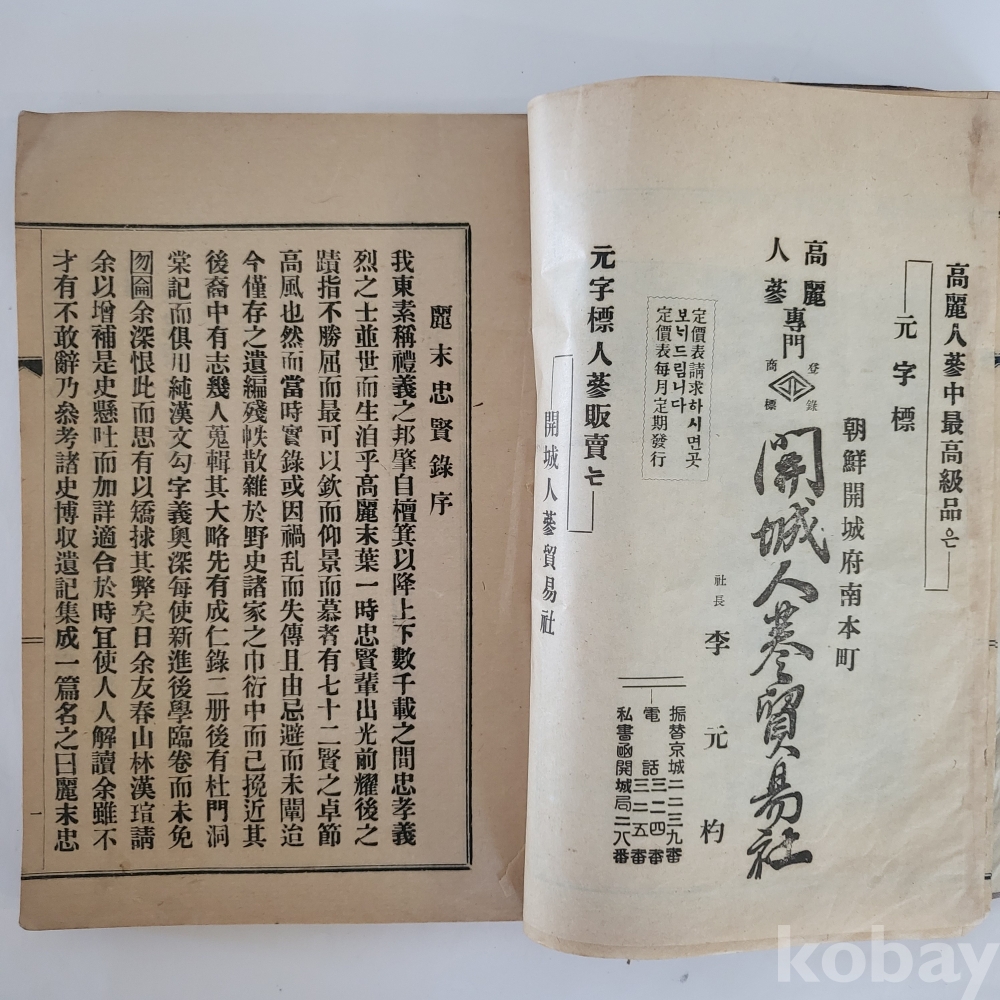 高麗人蔘中最高級品은
元字標
朝鮮開城府南本町
高麗
人蔘
專門
登錄
商標
開城人蔘貿易社
社長 李元杓
定價表請求하시면곳
보너드림니다
定價表每月定期發行
振替京城二二三九番
電話三二四番
三二五番
私書凾開城局二八番
元字標人蔘販賣는
開城人蔘貿易社
麗末忠賢錄序
我東素稱禮義之邦肇自檀箕以降上下數千載之間忠孝義
烈之士並世而生泊乎高麗末葉一時忠賢輩出光前耀後之
蹟指不勝屈而最可以欽而仰景而慕者有七十二賢之卓節
高風也然而當時實錄或因禍乱而失傳且由忌避而未闡迨
今僅存之遺編殘帙散雜於野史諸家之巾衍中而已挽近其
後裔中有志幾人蒐輯其大略先有成仁錄二册後有杜門洞
棠記而俱用純漢文勾字義奧深每使新進後學臨卷而未免
囫圇余深恨此而思有以矯捄其弊矣日余友春山林漢瑄請
余以增補是史懸吐而加詳適合於時冝使人人解讀余雖不
才有不敢辭乃叅考諸史博収遺記集成一篇名之曰麗末忠
一
kobay